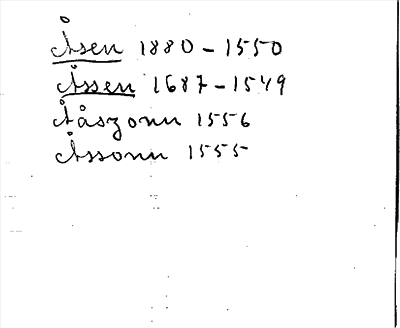 Åsen 1880-1550
Åssen 1687-1549
Ååszonn 1556
Åssonn 1555